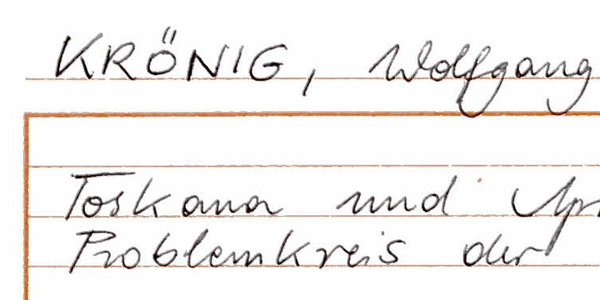 KRÖNIG, Wolfgang
Toskana und
Problemkreis der